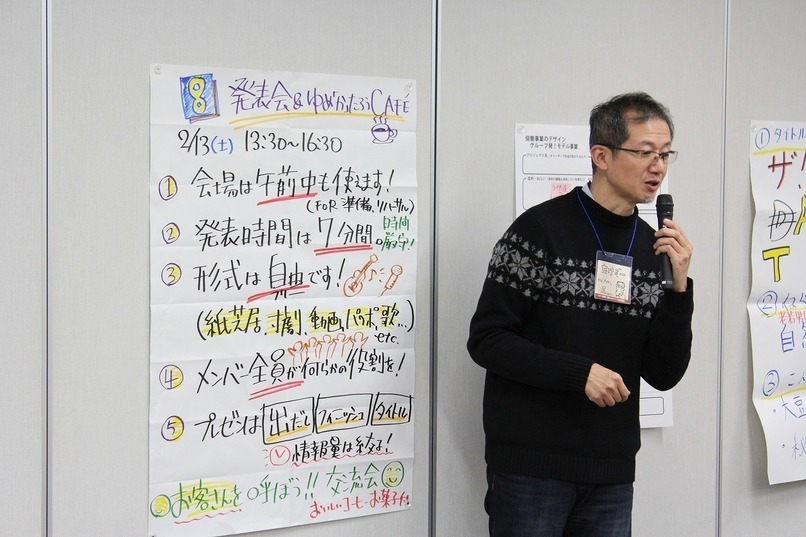 8 発表会&ゆめかたろうCAFÉ
2/13(土) 13:30~16:30
① 会場は午前中も使えます!
(FOR 準備、リハーサル)
② 発表時間は7分間。時間厳守!
③ 形式は自由です!
(紙芝居、寸劇、動画、パワポ、歌...)
etc.
④ メンバー全員が何らかの役割を!
⑤ プレゼンは出だしフィニッシュタイトル
情報量は絞る!
お客さんを呼ぼう!! 交流会
おいしいコーヒーお菓子付
協働事業のデザイン
グループ発!モデル事業
① タイトル
ザ・
T
②
自
③
・大豆